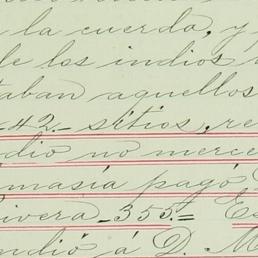 la cuerda, y
de los indios
taban aquellos
42_ sitios, re
dio no merce
masía pagó
Rivera_353.= Es
endió á D. M